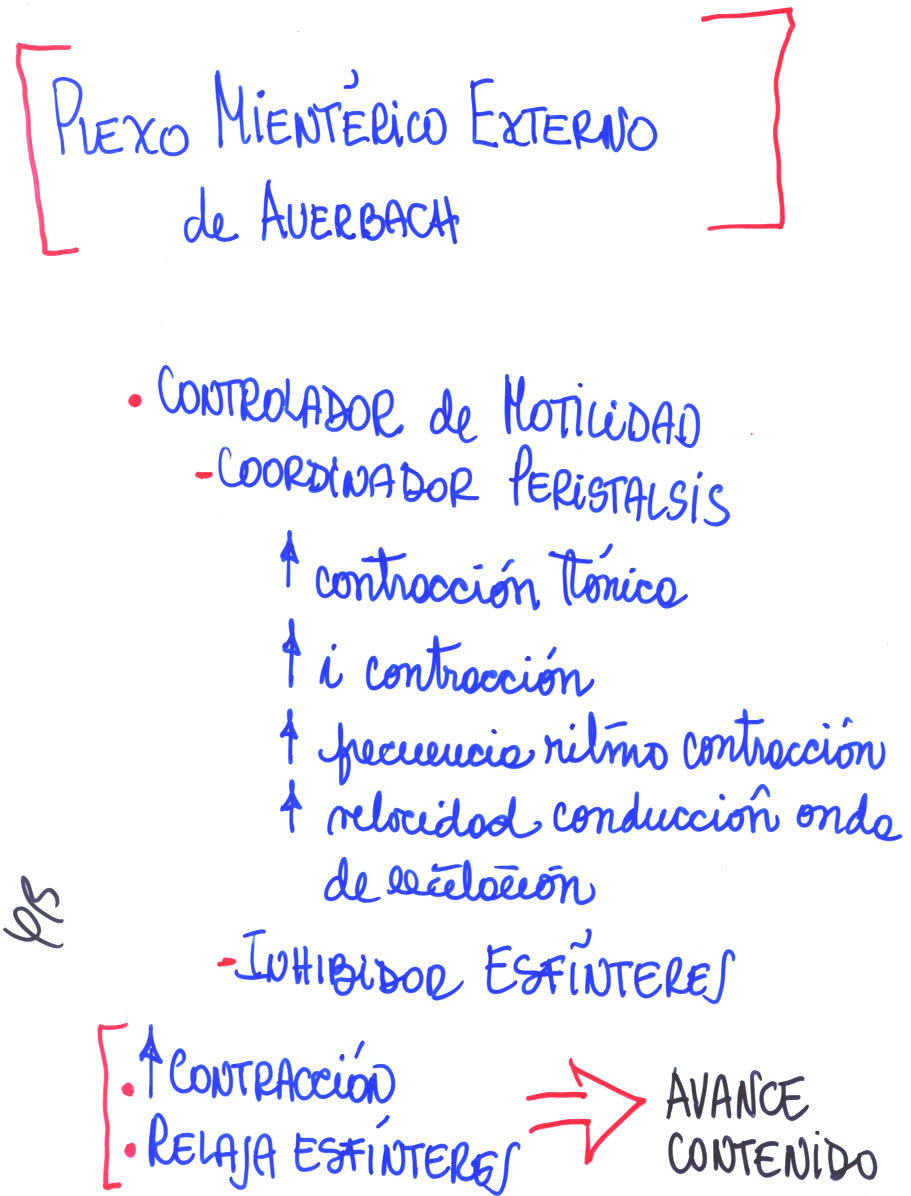 PLEXO MIENTÉRICO EXTERNO
de AUERBACH
• CONTROLADOR de MOTILIDAD
- COORDINADOR PERISTALSIS
↑ contracción tónica
↑ i contracción
↑ frecuencia ritmo contracción
↑ velocidad conducción onda
de excitación
- INHIBIDOR ESFÍNTERES
• ↑ CONTRACCIÓN
• RELAJA ESFÍNTERES
⇒ AVANCE
CONTENIDO